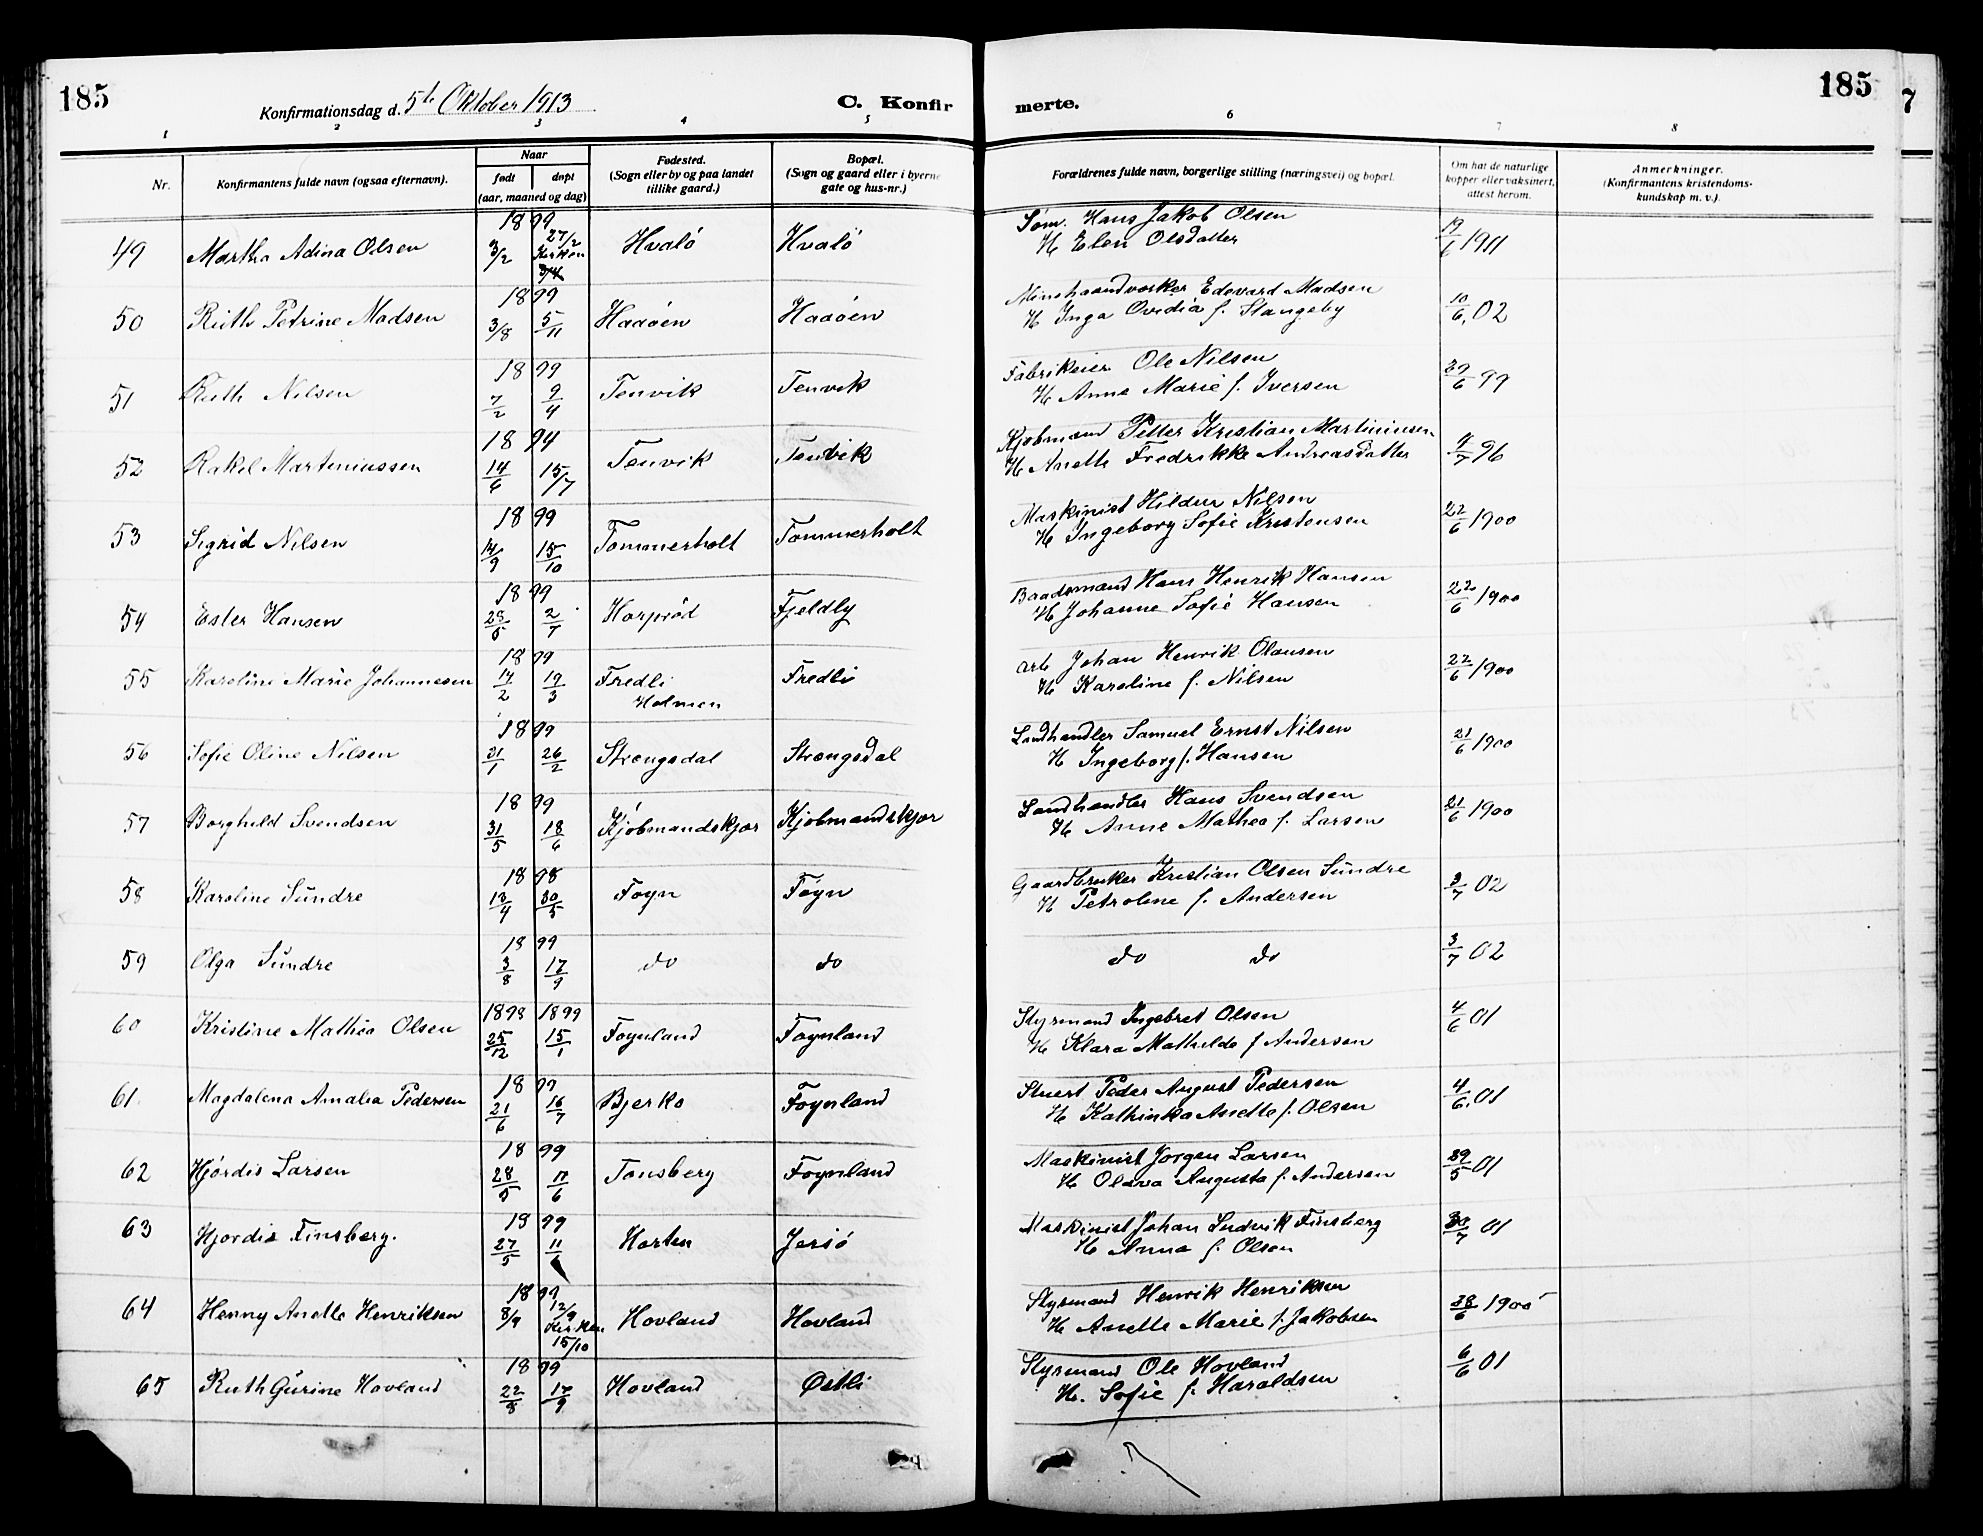 185
Konfirmationsdag d. 5te Oktober 1913
C. Konfirmerte.
185
7
1 2 3 4 5 6 7 8
Nr.
Konfirmantens fulde navn (ogsaa efternavn).
Naar
født døpt
(aar, maaned og dag)
Fødested.
(Sogn eller by og paa landet
tillike gaard.)
Bopæl.
(Sogn og gaard eller i byerne
gate og hus-nr.)
Forældrenes fulde navn, borgerlige stilling (næringsvei) og bopæl.
Om hat de naturlige
kopper eller vaksinert,
attest herom.
Anmerkninger.
(Konfirmantens kristendoms-
kundskap m. v.)
49 Martha Adina Olsen 1899 3/2 27/2 Kirken 3/4 Hvalö Hvalö Söm. Hans Jakob Olsen
H Elen Olsdatter 19/6 1911
50 Ruth Petrine Madsen 1899 3/8 5/11 Haaöen Haaöen Minehaandverker Edevard Madsen
H Inga Ovidia f. Stangeby 10/6 02
51 Ruth Nilsen 1899 7/2 9/4 Tenvik Tenvik Fabrikeier Ole Nilsen
H Anne Marie f. Iversen 29/6 99
52 Rakel Marteniussen 1894 14/6 15/7 Tenvik Tenvik Kjobmand Petter Kristian Martiniusen
H Anette Fredrikke Andreasdatter 9/7 96
53 Sigrid Nilsen 1899 14/9 15/10 Tommerholt Tommerholt Maskinist Hildur Nilsen
H Ingeborg Sofie Kristensen 22/6 1900
54 Ester Hansen 1899 25/5 2/7 Horpröd Fjeldly Baadsmand Hans Henrik Hansen
H Johanne Sofie Hansen 22/6 1900
55 Karoline Marie Johannesen 1899 14/2 19/3 Fredli
Holmen Fredli arb Johan Henrik Olausen
H Karoline f. Nilsen 22/6 1900
56 Sofie Oline Nilsen 1899 21/1 26/2 Strengsdal Strengsdal Landhandler Samuel Ernst Nilsen
H Ingeborg f. Hansen 21/6 1900
57 Borghild Svendsen 1899 31/5 18/6 Kjöbmandskjær Kjobmandskjær Landhandler Hans Svendsen
H Anne Mathea f. Larsen 21/6 1900
58 Karoline Sundre 1898 13/4 30/5 Foyn Foyn Gaardbruker Kristian Olsen Sundre
H Petroline f. Andersen 3/7 02
59 Olga Sundre 1899 3/8 17/9 do do do do 3/7 02
60 Kristine Mathea Olsen 1898 1899 25/12 15/1 Foynland Foynland Styrmand Ingebret Olsen
H Klara Mathilde f Andersen 4/6 01
61 Magdalena Amalia Pedersen 1899 21/6 16/7 Bjerko Foynland Stuert Peder August Pedersen
H Kathinka Anette f. Olsen 4/6 01
62 Hjördis Larsen 1899 28/5 11/6 Tonsberg Foynland Maskinist Jorgen Larsen
H Olava Augusta f. Andersen 29/5 01
63 Hjordis Finsberg. 1899 27/5 11/6 Horten Jersö Maskinist Johan Ludvik Finsberg
H Anna f. Olsen 30/7 01
64 Henny Anette Henriksen 1899 8/9 12/9 Kirken 15/10 Hovland Hovland Styrmand Henrik Henriksen
H Anette Marie f. Jakobsen 28/6 1900
65 Ruth Gurine Hovland 1899 22/8 17/9 Hovland Østli Styrmand Ole Hovland
H. Sofie f. Haraldsen 6/6 01